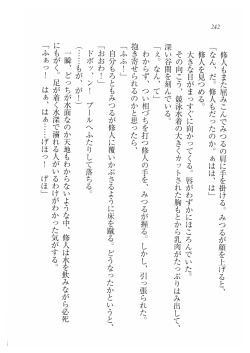 242
修人もまた屈みこんでみつるの肩に手を掛ける。みつるが顔を上げると、
「なんだ。修人もだったのか。あはは、は」
修人を見つめる。
大きな目がまっすぐ向かってくる。唇がわずかにほころんでいた。
その向こう、競泳水着の大きくカットされた胸もとから乳肉がたっぷりはみ出し、
深い谷間を刻んでいる。
「え。なん、て」
わからず、つい相づちを打つ修人の手を、みつるが握る。しかし、引っ張られた。
抱き寄せられるのかと思うと、
「ふふー！」
自分もろともみつるが修人に覆いかぶさるように床を蹴る。どうなったかというと、
「おおわ！」
ドボッ、ン！　プールへふたりして落ちる。
(……もが、が！)
一瞬、どっちが水面なのか天地もわからないような中、修人は水を飲みながら必死
にもがく。足が着く水深で溺れているわけがわかった気がする。
「ふぁっ！　はぁ、はぁ……げほっ！　げほ」